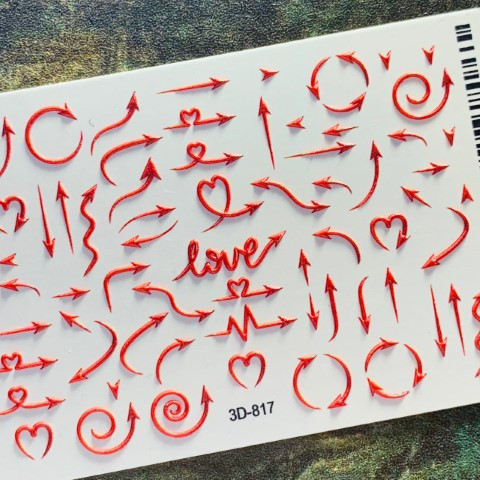 love
3D-817